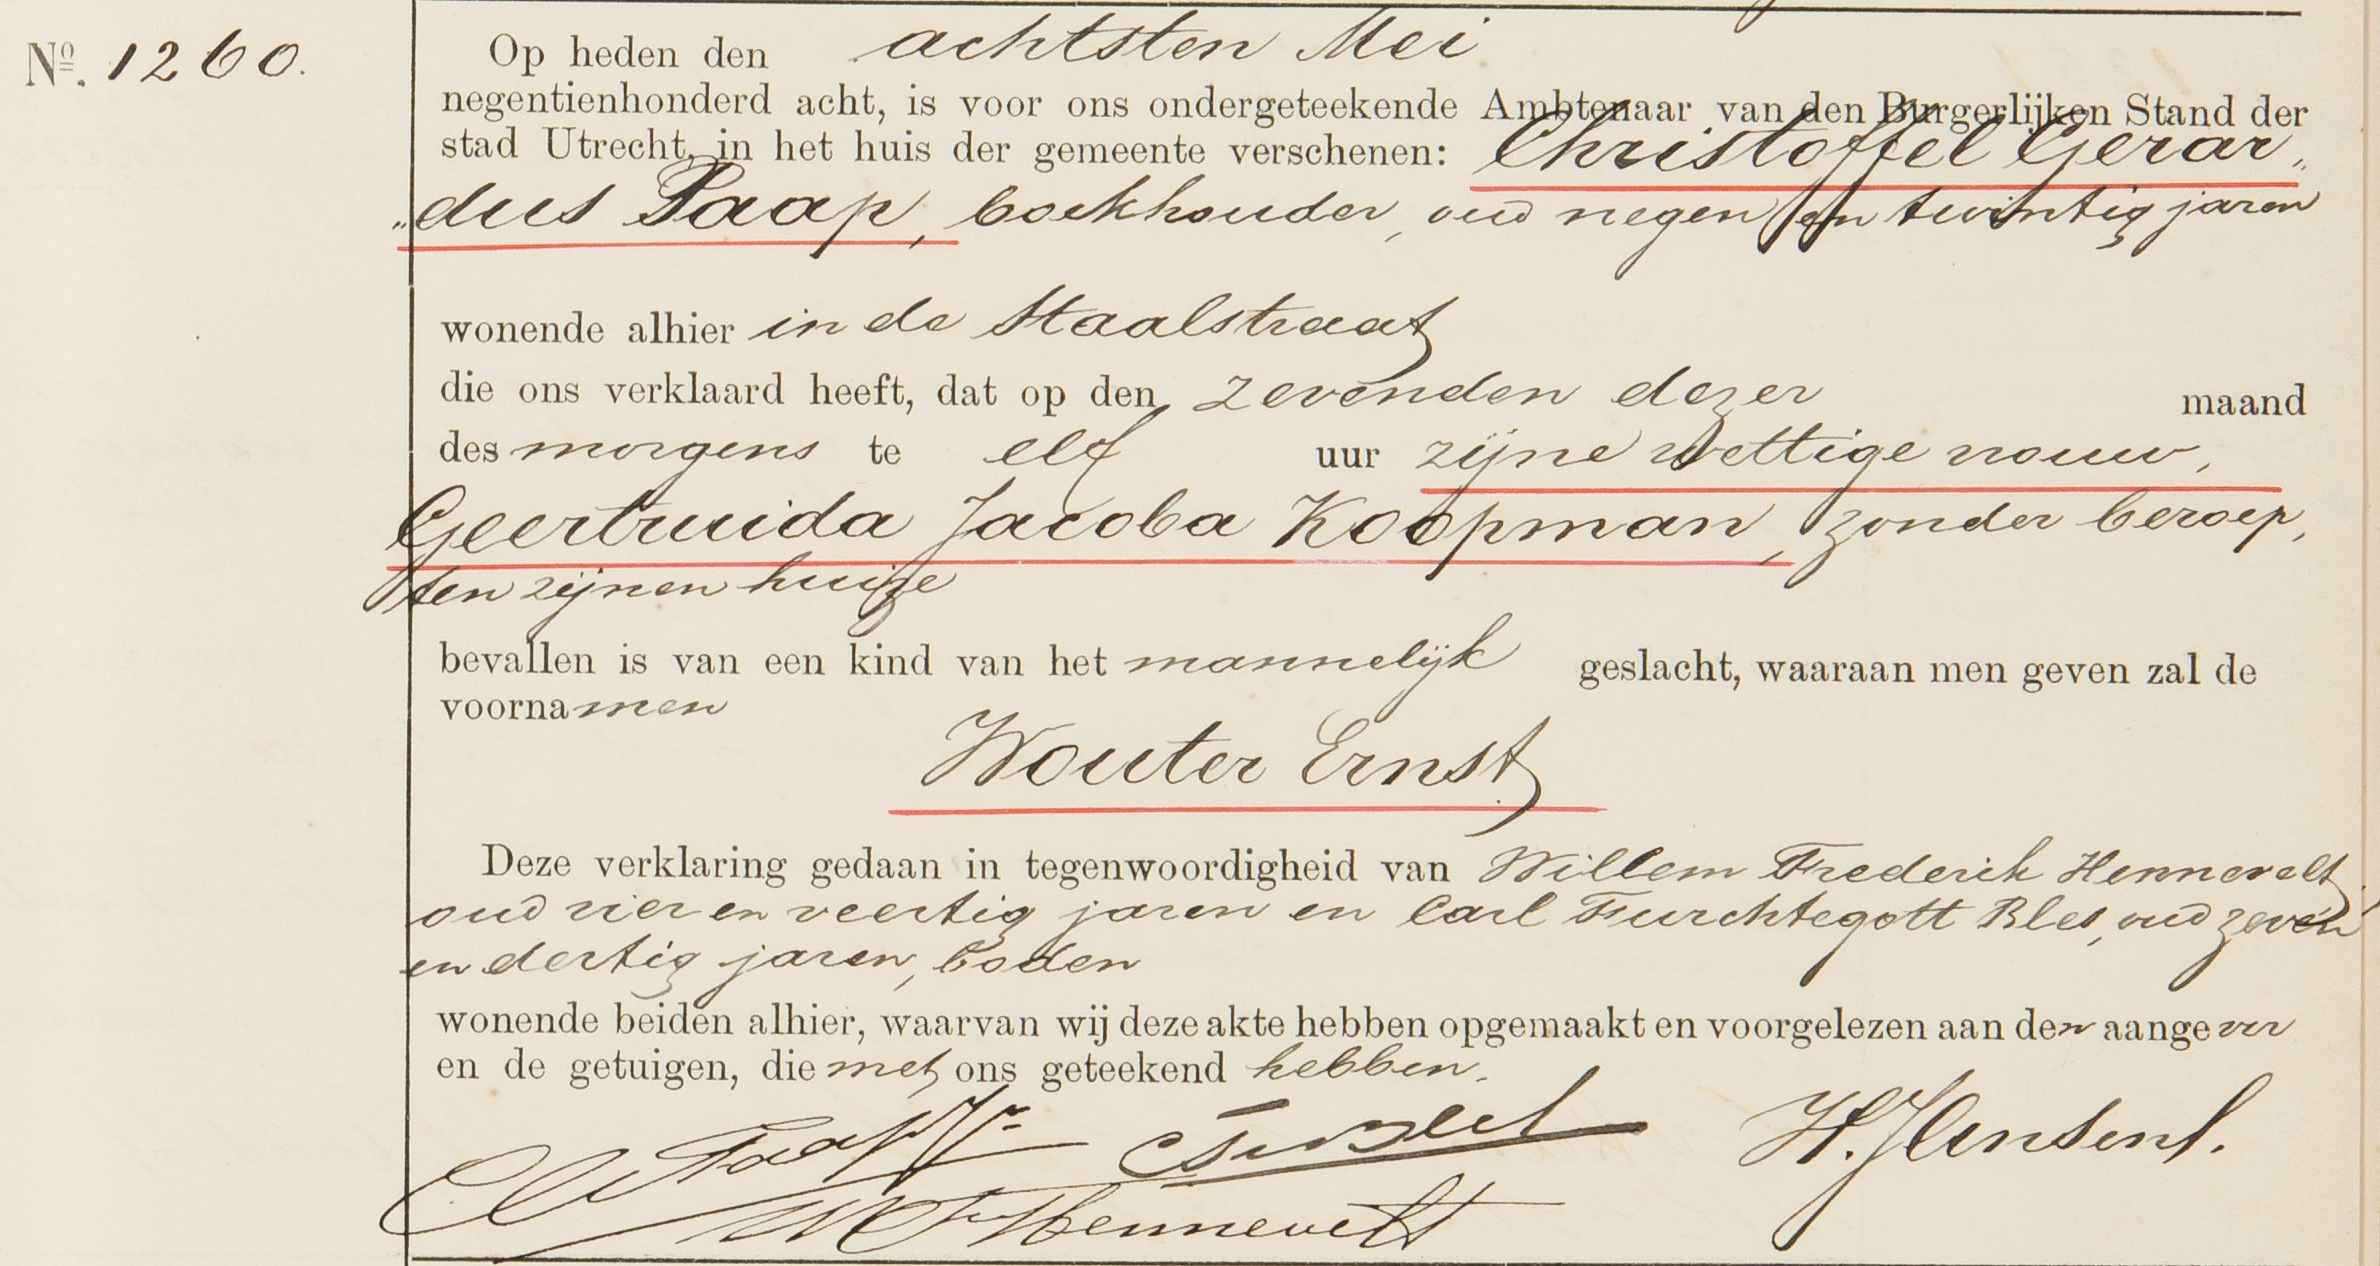 Nº. 1260.
Op heden den achtsten Mei
negentienhonderd acht, is voor ons ondergeteekende Ambtenaar van den Burgerlijken Stand der
stad Utrecht, in het huis der gemeente verschenen: Christoffel Gerar„
„dus Paap, boekhouder, oud negen en twintig jaren
wonende alhier in de Staalstraat
die ons verklaard heeft, dat op den zevenden dezer maand
des morgens te elf uur zijne wettige vrouw,
Geertruida Jacoba Koopman, zonder beroep,
ten zijnen huize
bevallen is van een kind van het mannelijk geslacht, waaraan men geven zal de
voornamen
Wouter Ernst
Deze verklaring gedaan in tegenwoordigheid van Willem Frederik Hennevelt,
oud vier en veertig jaren en Carl Furchtegott Bles, oud zeven
en dertig jaren, boden
wonende beiden alhier, waarvan wij deze akte hebben opgemaakt en voorgelezen aan den aangever
en de getuigen, die met ons geteekend hebben.
Paap Jr. Bles H.
WF Hennevelt